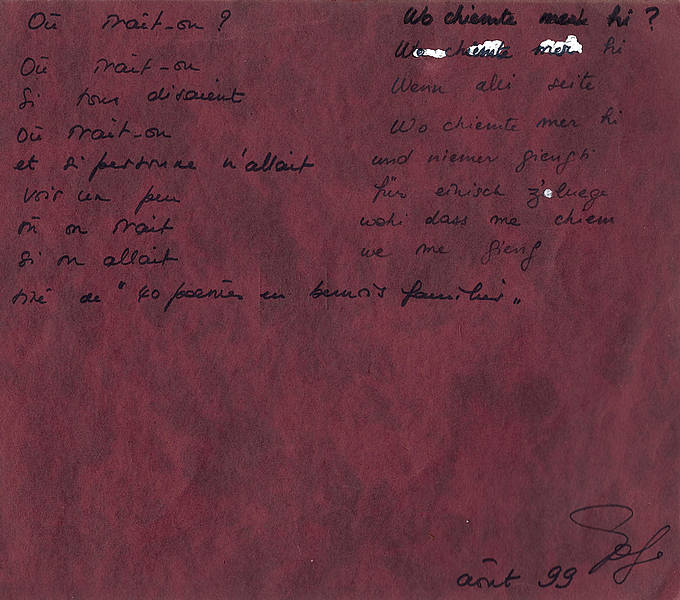 Où irait-on ?
Où irait-on
si tous disaient
Où irait-on
et si personne n'allait
voir un peu
où on irait
si on allait
tiré de "40 poèmes en bernois familier"
Wo chiemte mer hi ?
Wo chiemte mer hi
Wenn alli seite
Wo chiemte mer hi
und niemer giengti
für einisch z'luege
wohi dass me chiem
we me gieng
août 99